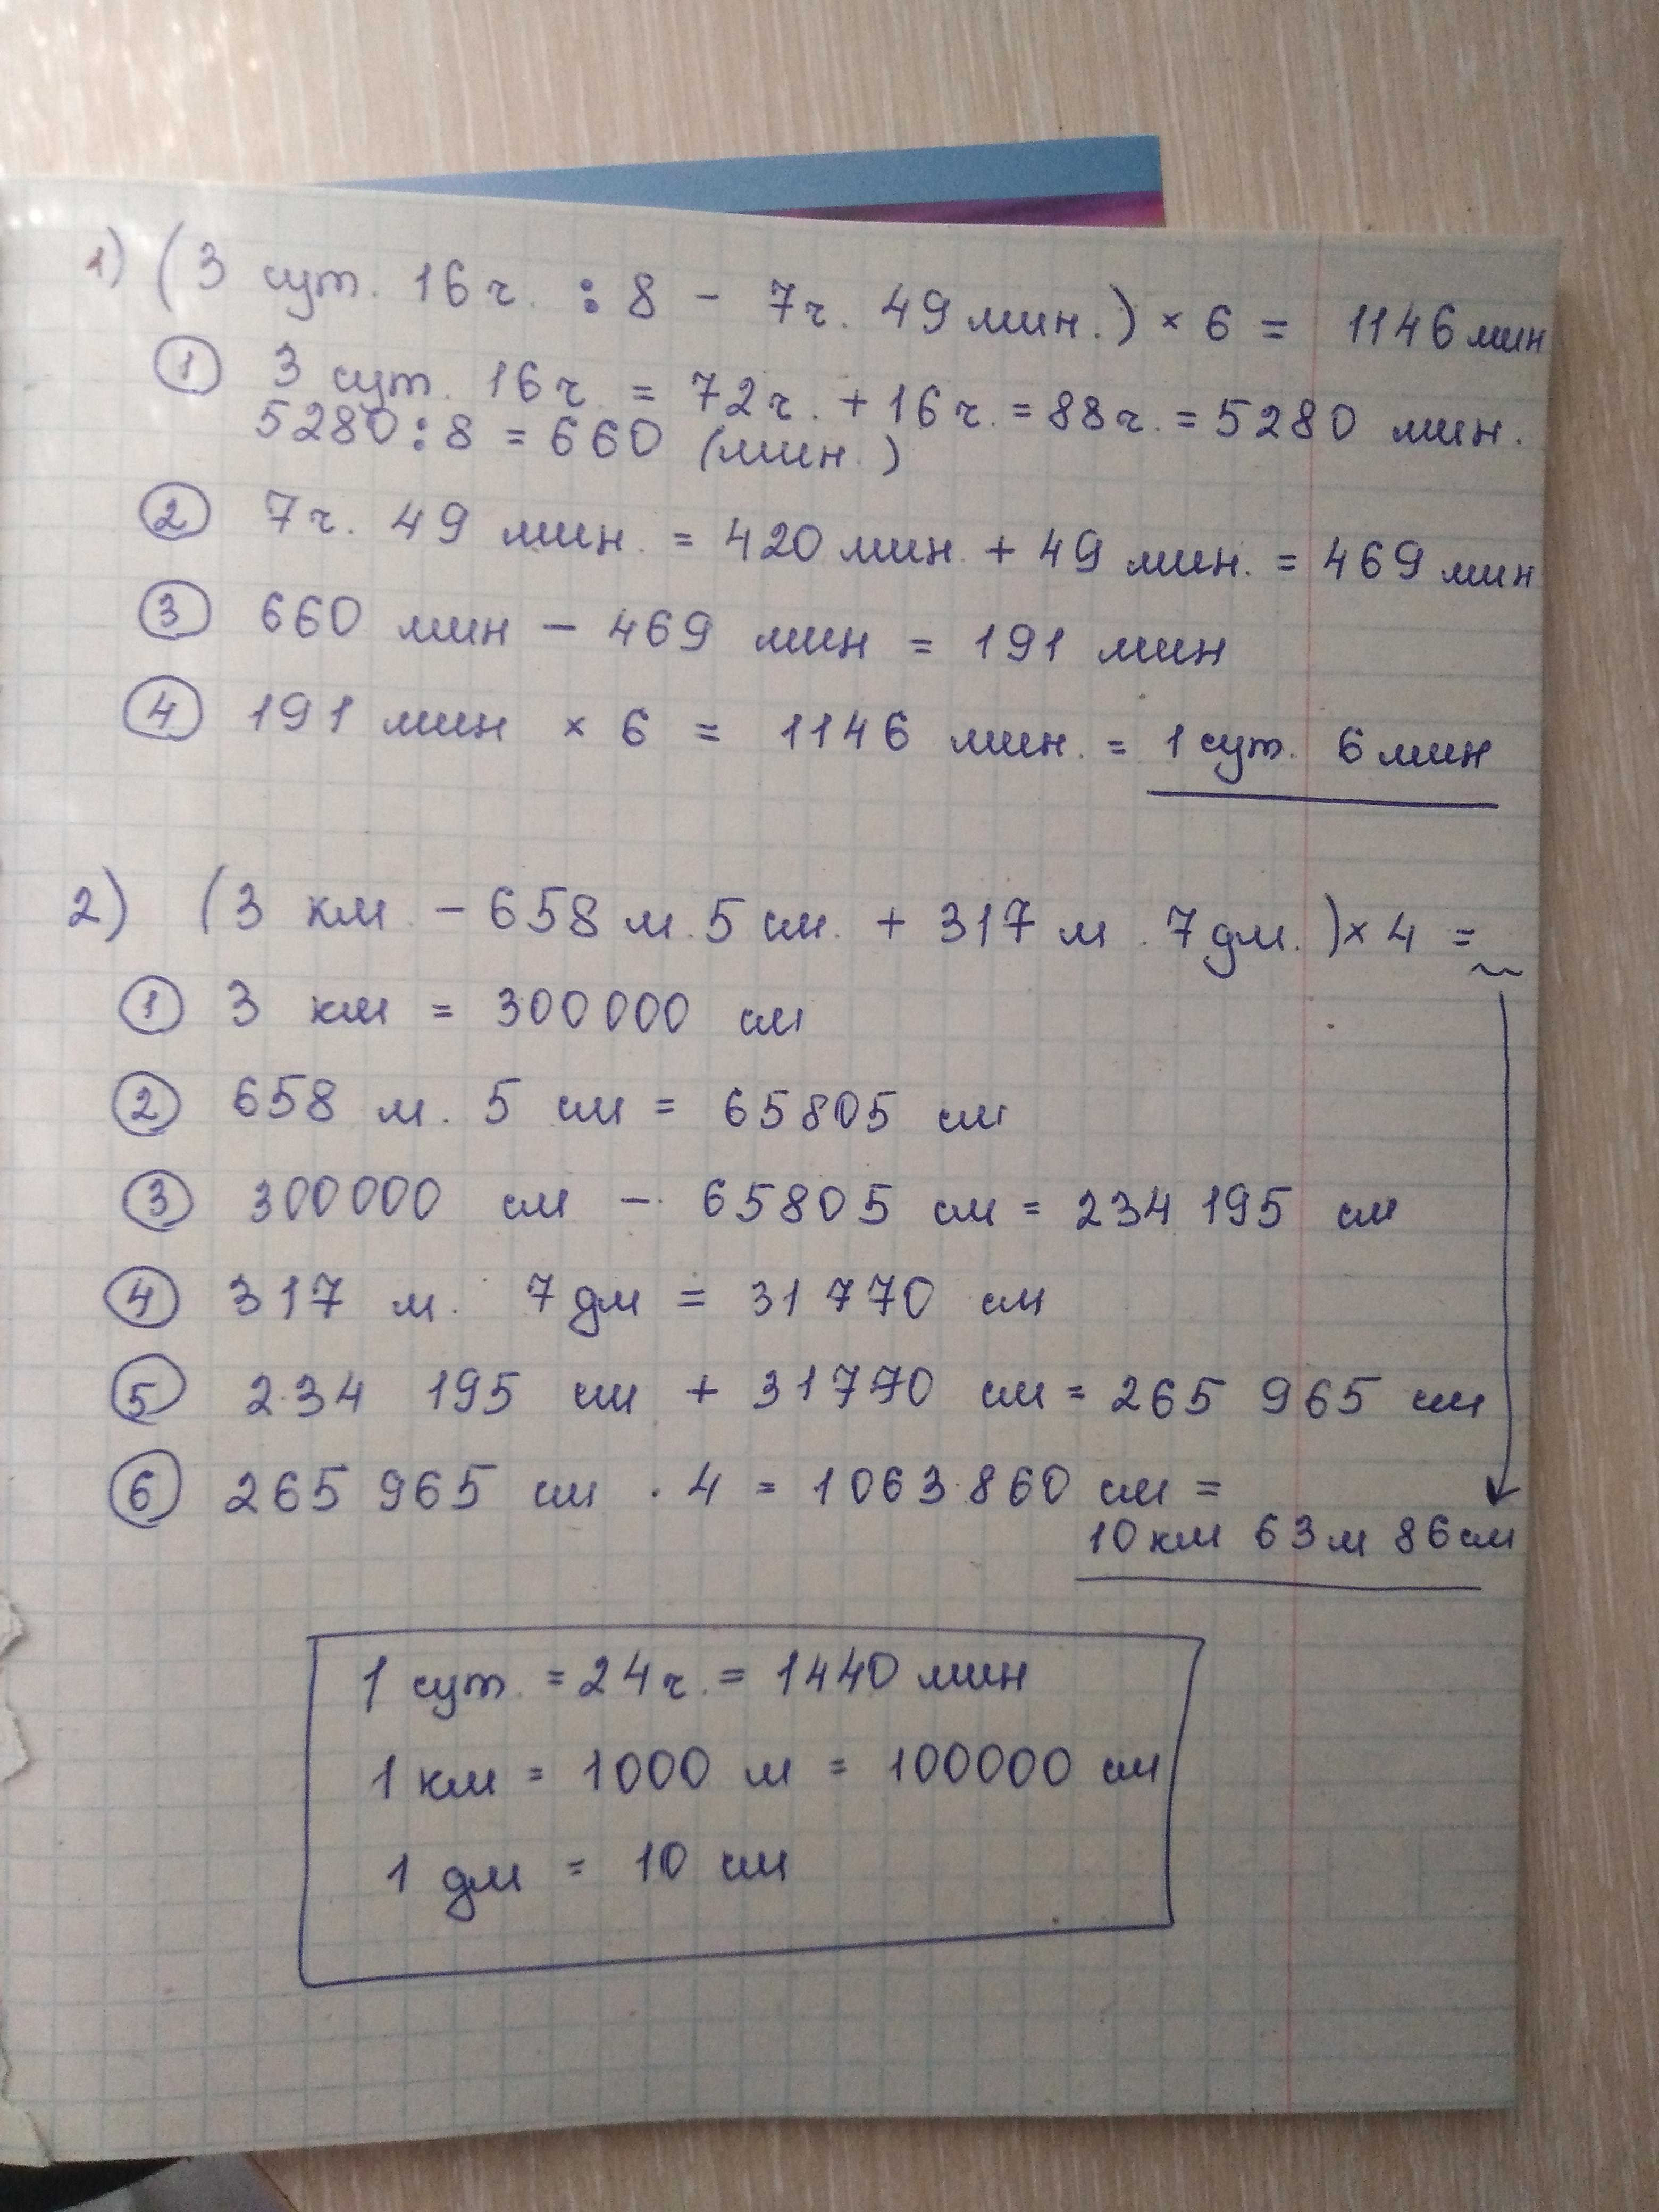 1) (3 сут. 16 ч. : 8 - 7ч. 49 мин.) × 6 = 1146 мин
① 3 сут. 16ч. = 72ч. + 16ч. = 88ч. = 5280 мин.
5280 : 8 = 660 (мин.)
② 7ч. 49 мин. = 420 мин. + 49 мин. = 469 мин
③ 660 мин - 469 мин = 191 мин
④ 191 мин × 6 = 1146 мин. = 1 сут. 6 мин
2) (3 км - 658 м. 5 см. + 317 м. 7 дм.) × 4 =
① 3 км = 300000 см
② 658 м. 5 см = 65805 см
③ 300000 см - 65805 см = 234 195 см
④ 317 м. 7 дм = 31 770 см
⑤ 234 195 см + 31770 см = 265 965 см
⑥ 265 965 см · 4 = 1063 860 см =
10 км 63 м 86 см
1 сут. = 24 ч. = 1440 мин
1 км = 1000 м = 100000 см
1 дм = 10 см